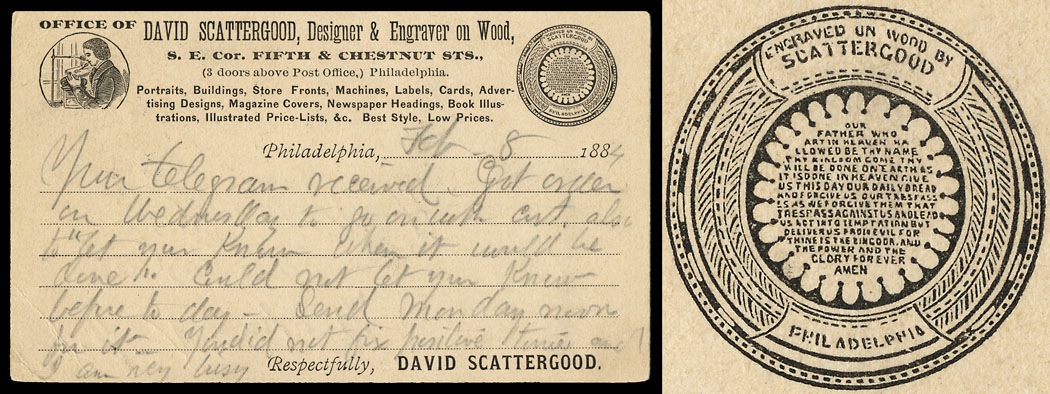 OFFICE OF
DAVID SCATTERGOOD, Designer & Engraver on Wood,
S. E. Cor. FIFTH & CHESTNUT STS.,
(3 doors above Post Office,) Philadelphia.
Portraits, Buildings, Store Fronts, Machines, Labels, Cards, Adver-
tising Designs, Magazine Covers, Newspaper Headings, Book Illus-
trations, Illustrated Price-Lists, &c. Best Style, Low Prices.
Philadelphia, Feb - 8 1884
Your telegram received. Got order
on Wednesday to go on with cut also
to "let you know when it would be
done". Could not let you know
before to day - Send Monday noon
for it - You did not fix positive time and
I am very busy
Respectfully, DAVID SCATTERGOOD.
ENGRAVED ON WOOD BY
SCATTERGOOD
OUR
FATHER WHO
ART IN HEAVEN HA
LLOWED BE THY NAME
THY KINGDOM COME THY
WILL BE DONE ON EARTH AS
IT IS DONE IN HEAVEN GIVE
US THIS DAY OUR DAILY BREAD
AND FORGIVE US OUR TRESPASS
ES AS WE FORGIVE THEM THAT
TRESPASS AGAINST US AND LEAD
US NOT INTO TEMPTATION BUT
DELIVER US FROM EVIL FOR
THINE IS THE KINGDOM, AND
THE POWER AND THE
GLORY FOR EVER
AMEN
PHILADELPHIA